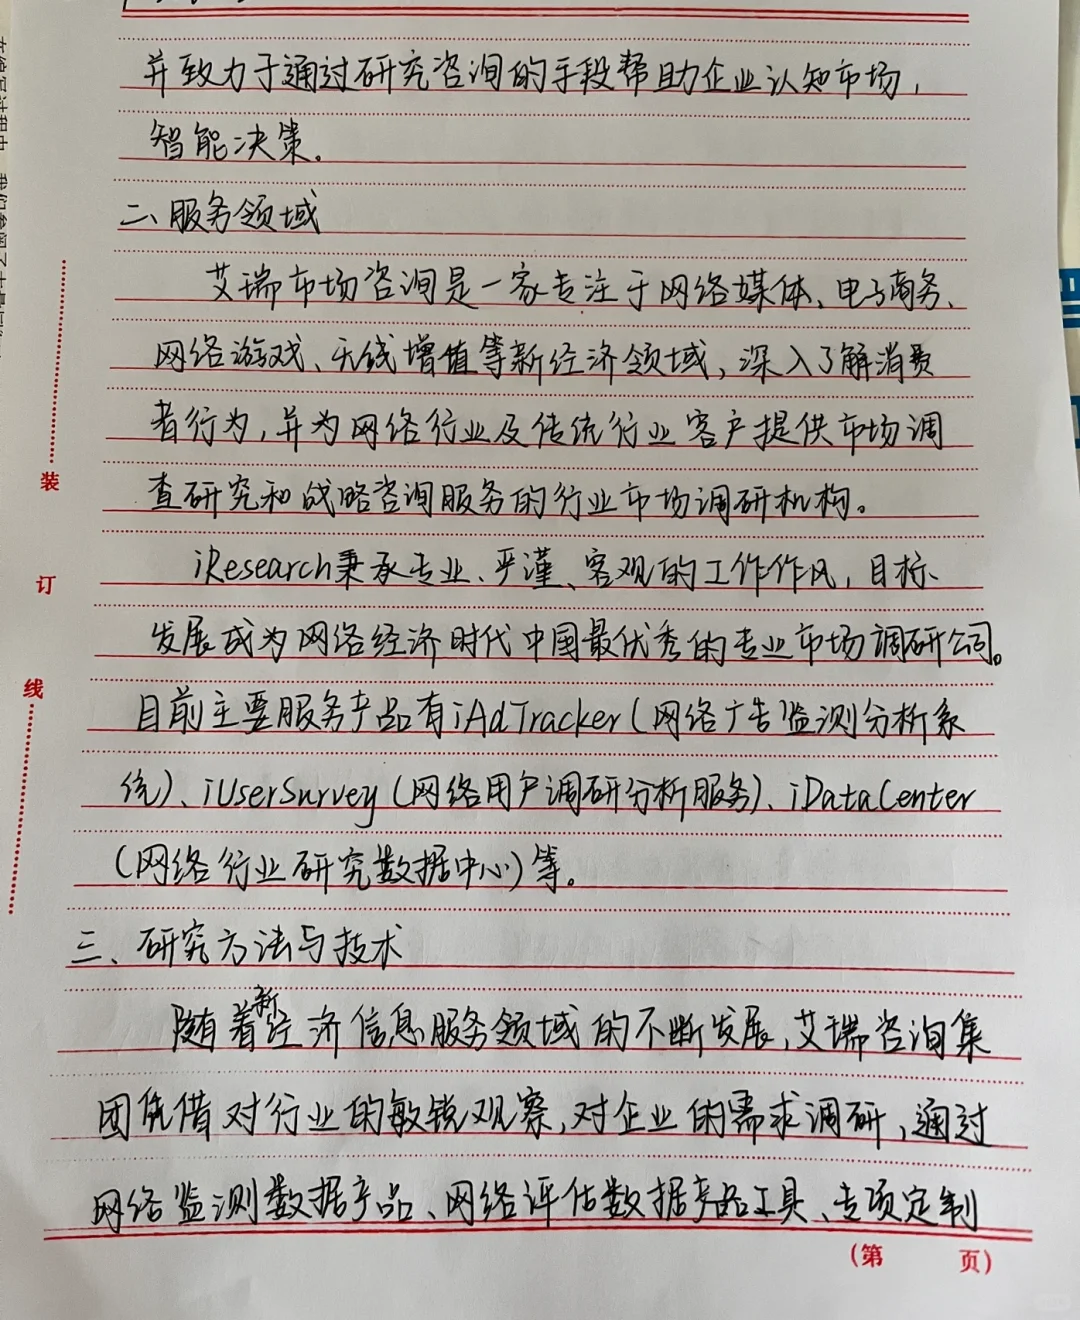 并致力于通过研究咨询的手段帮助企业认知市场,
智能决策。
二、服务领域
艾瑞市场咨询是一家专注于网络媒体、电子商务、
网络游戏、无线增值等新经济领域,深入了解消费
者行为,并为网络行业及传统行业客户提供市场调
查研究和战略咨询服务的行业市场调研机构。
iResearch秉承专业、严谨、客观的工作作风,目标、
发展成为网络经济时代中国最优秀的专业市场调研公司。
目前主要服务产品有iAdTracker(网络广告监测分析系
统)、iUserSurvey(网络用户调研分析服务)、iDataCenter
(网络行业研究数据中心)等。
三、研究方法与技术
随着新经济信息服务领域的不断发展,艾瑞咨询集
团凭借对行业的敏锐观察,对企业的需求调研,通过
网络监测数据产品、网络评估数据产品工具、专项定制
装
订
线
(第 页)